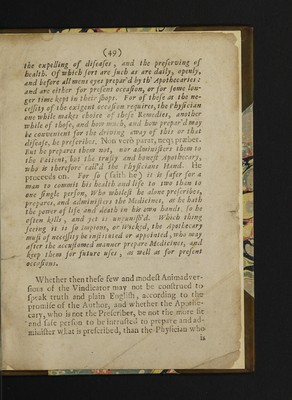 (49)
the expelling of diseases, and the preserving of
health. Of which sort are such as are daily, openly,
and before all mens eyes prepar'd by th' Apothecaries:
and are either for present occasion, or for some lon-
ger time kept in their shops. For of these as the ne-
cessity of the exigent occasion requires, the Physician
one while makes choice of these Remedies, another
while of those, and how much, and how prepar'd may
be convenient for the driving away of this or that
disease, he prescribes. Non verò parat, neq; præbet.
But he prepares them not, nor administers them to
the Patient, but the trusty and honest Apothecary,
who is therefore call'd the Physicians Hand. He
proceeds on. For so (saith he) it is safer for a
man to commit his health and life to two than to
one single person, Who whilest he alone prescribes,
prepares, and administers the Medicines, as he hath
the power of life and death in his own hands, so he
often kills, and yet is unpunish'd. Which thing
seeing it is so impious, or wicked, the Apothecary
must of necessity be instituted or appointed, who may
after the accustomed manner prepare Medicines, and
keep them for future uses, as well as for present
occasions.
Whether then these few and modest Animadver-
sions of the Vindicator may not be construed to
speak truth and plain English, according to the
promise of the Author, and whether the Apothe-
cary, who is not the Prescriber, be not the more fit
and safe person to be intrusted to prepare and ad-
minister what is prescribed, than the Physician who
is